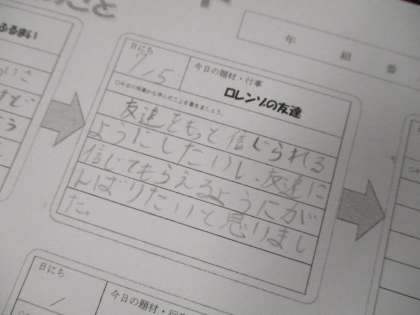 こと
年 組 番
ふるまい
日にち
7/5
今日の題材・行事
ロレンゾの友達
友達をもっと信じられる
ようにしたいし、友達に
信じてもらえるようにが
んばりたいと思いまし
た。
日にち
/
今日の題材・行事